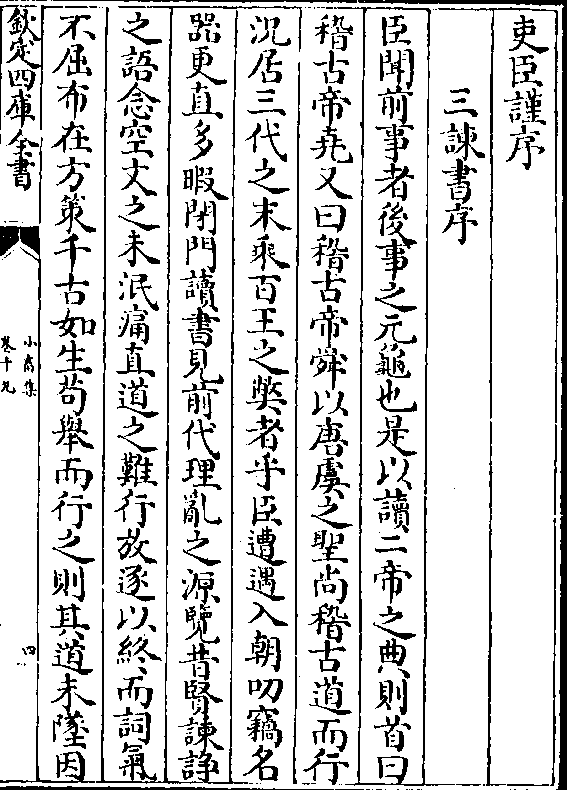 吏臣謹序
三諫書序
臣聞前事者後事之元龜也是以讀二帝之典則首曰
稽古帝堯又曰稽古帝舜以唐虞之聖尚稽古道而行
况居三代之末乘百王之弊者乎臣遭遇入朝叨竊名
器更直多暇閉門讀書見前代理亂之源覽昔賢諫諍
之語念空文之未泯痛直道之難行放逐以終而詞氣
不屈布在方策千古如生苟舉而行之則其道未墜因
欽定四庫全書
小畜集
卷十九
四